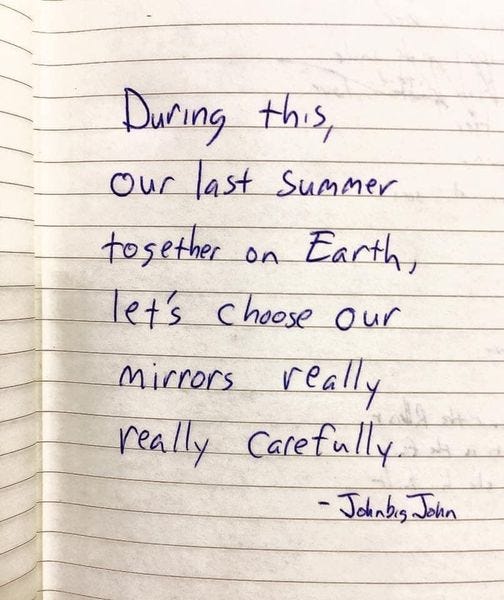 During this,
our last summer
together on Earth,
let's choose our
mirrors really
really carefully.
- Johnbig John